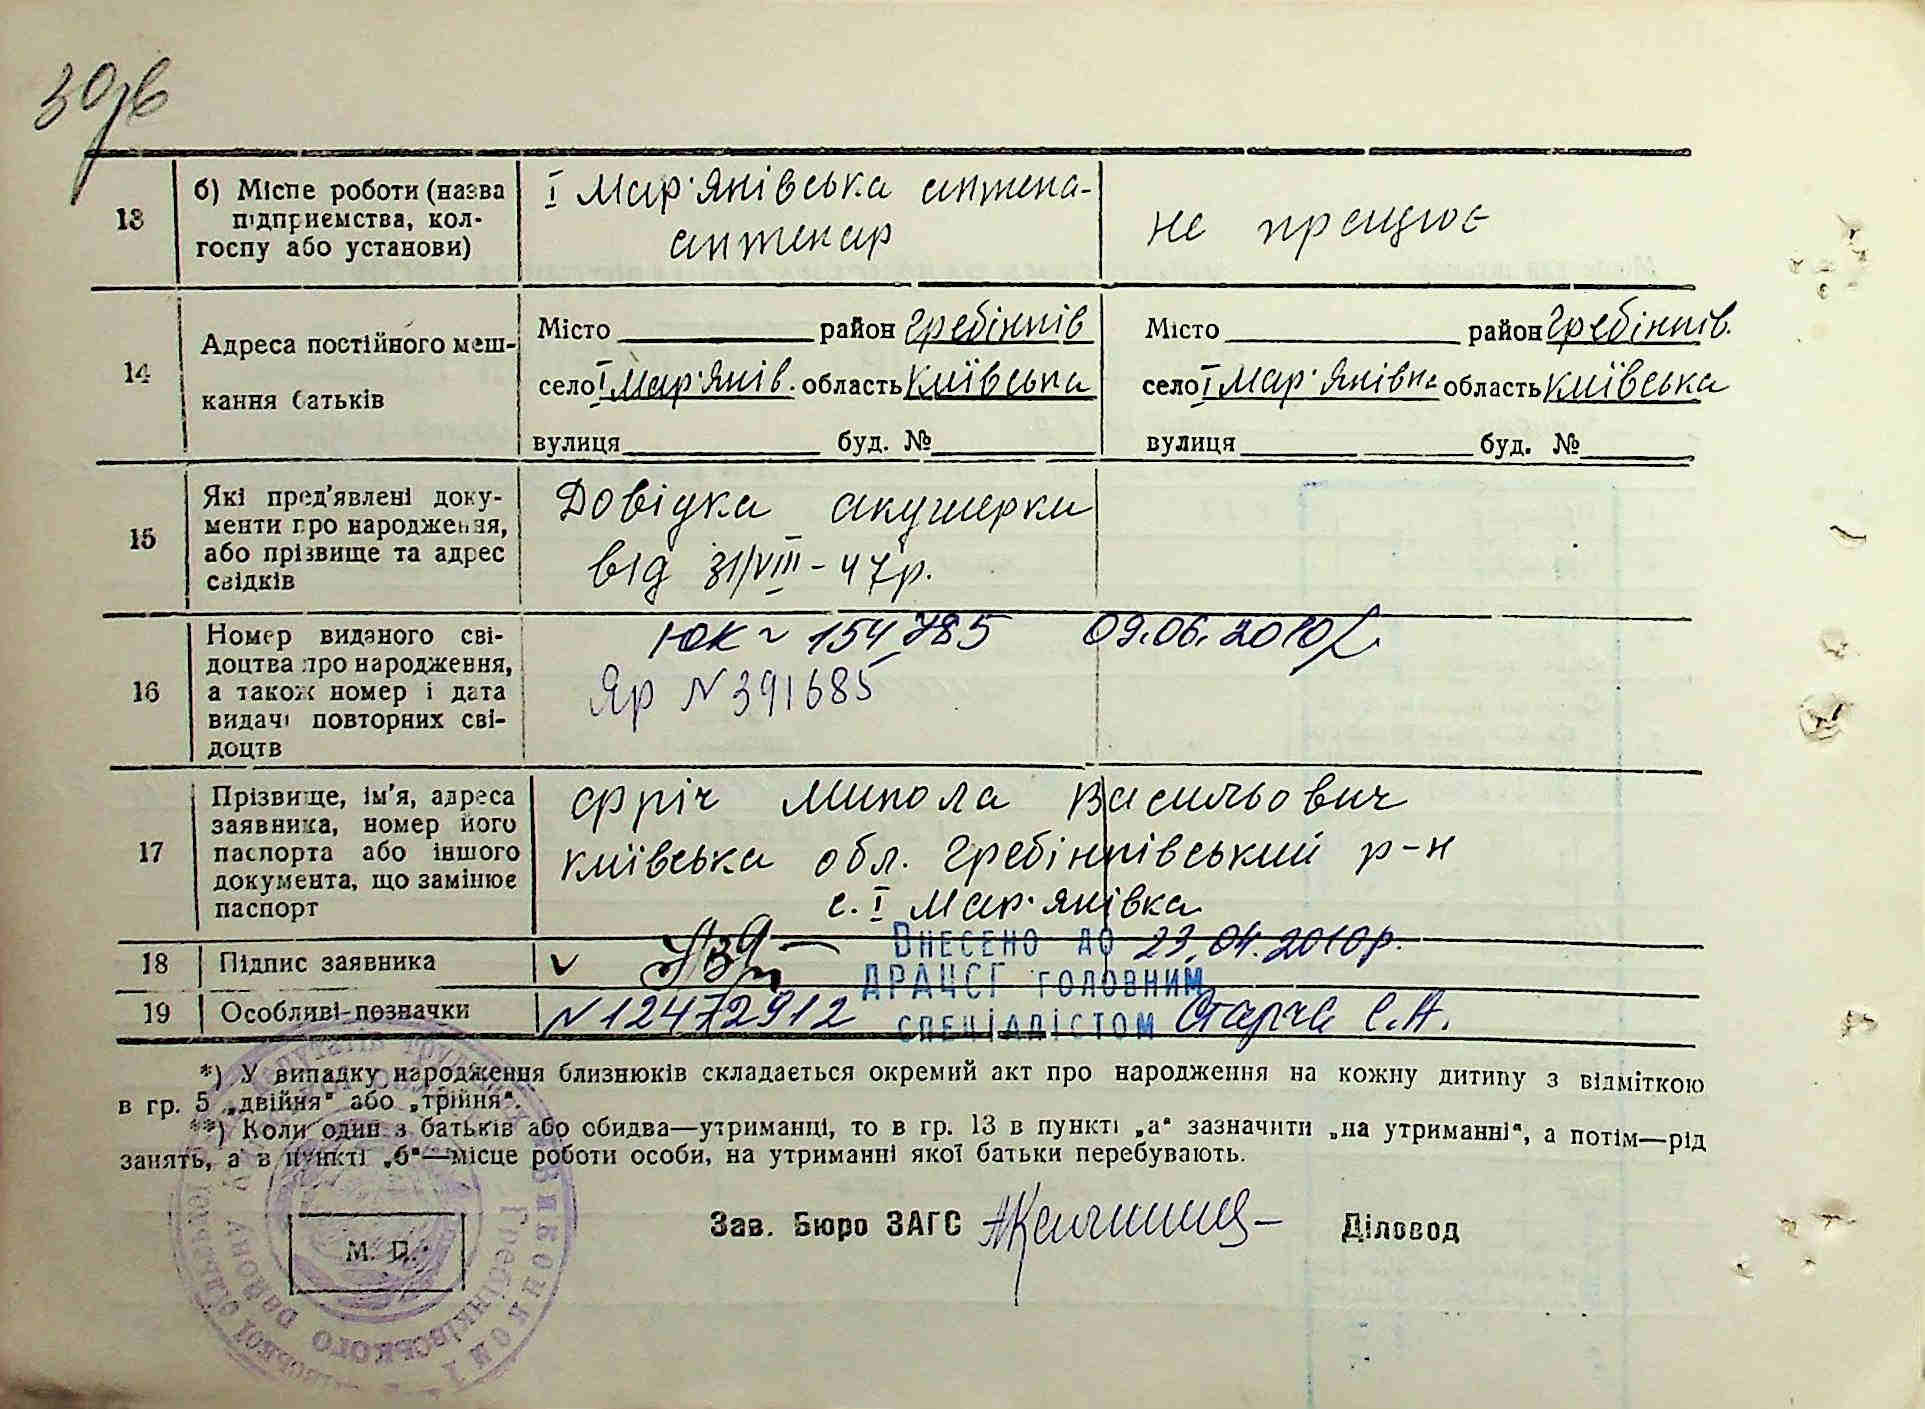 30зв
13 б) Місце роботи (назва підприємства, колгоспу або установи) І Мар'янівська аптека- не працює
аптекар
14 Адреса постійного мешкання батьків
Місто район Гребінків Місто район Гребінків.
село І Мар'янів. область Київська село І Мар'янівка область Київська
вулиця буд. № вулиця буд. №
15 Які пред'явлені документи про народження, або прізвище та адрес свідків
Довідка акушерки
від 31/VIII-47р.
16 Номер виданого свідоцтва про народження, а також номер і дата видачі повторних свідоцтв
ЮК ~ 154785 09.06.2010р.
Яр N 391685
17 Прізвище, ім'я, адреса заявника, номер його паспорта або іншого документа, що замінює паспорт
Фріч Микола Васильович
Київська обл. Гребінківський р-н
с. І Мар'янівка
18 Підпис заявника V Внесено до 23.04.2010р.
ДРАЦСГ головним
19 Особливі позначки N 12472912 спеціалістом Старча С.А.
*) У випадку народження близнюків складається окремий акт про народження на кожну дитину з відміткою
в гр. 5 „двійня" або „трійня".
**) Коли один з батьків або обидва—утриманці, то в гр. 13 в пункті „а" зазначити „на утриманні", а потім—рід
занять, а в пункті „б"—місце роботи особи, на утриманні якої батьки перебувають.
Зав. Бюро ЗАГС Діловод
М. П.
Гребінківського району